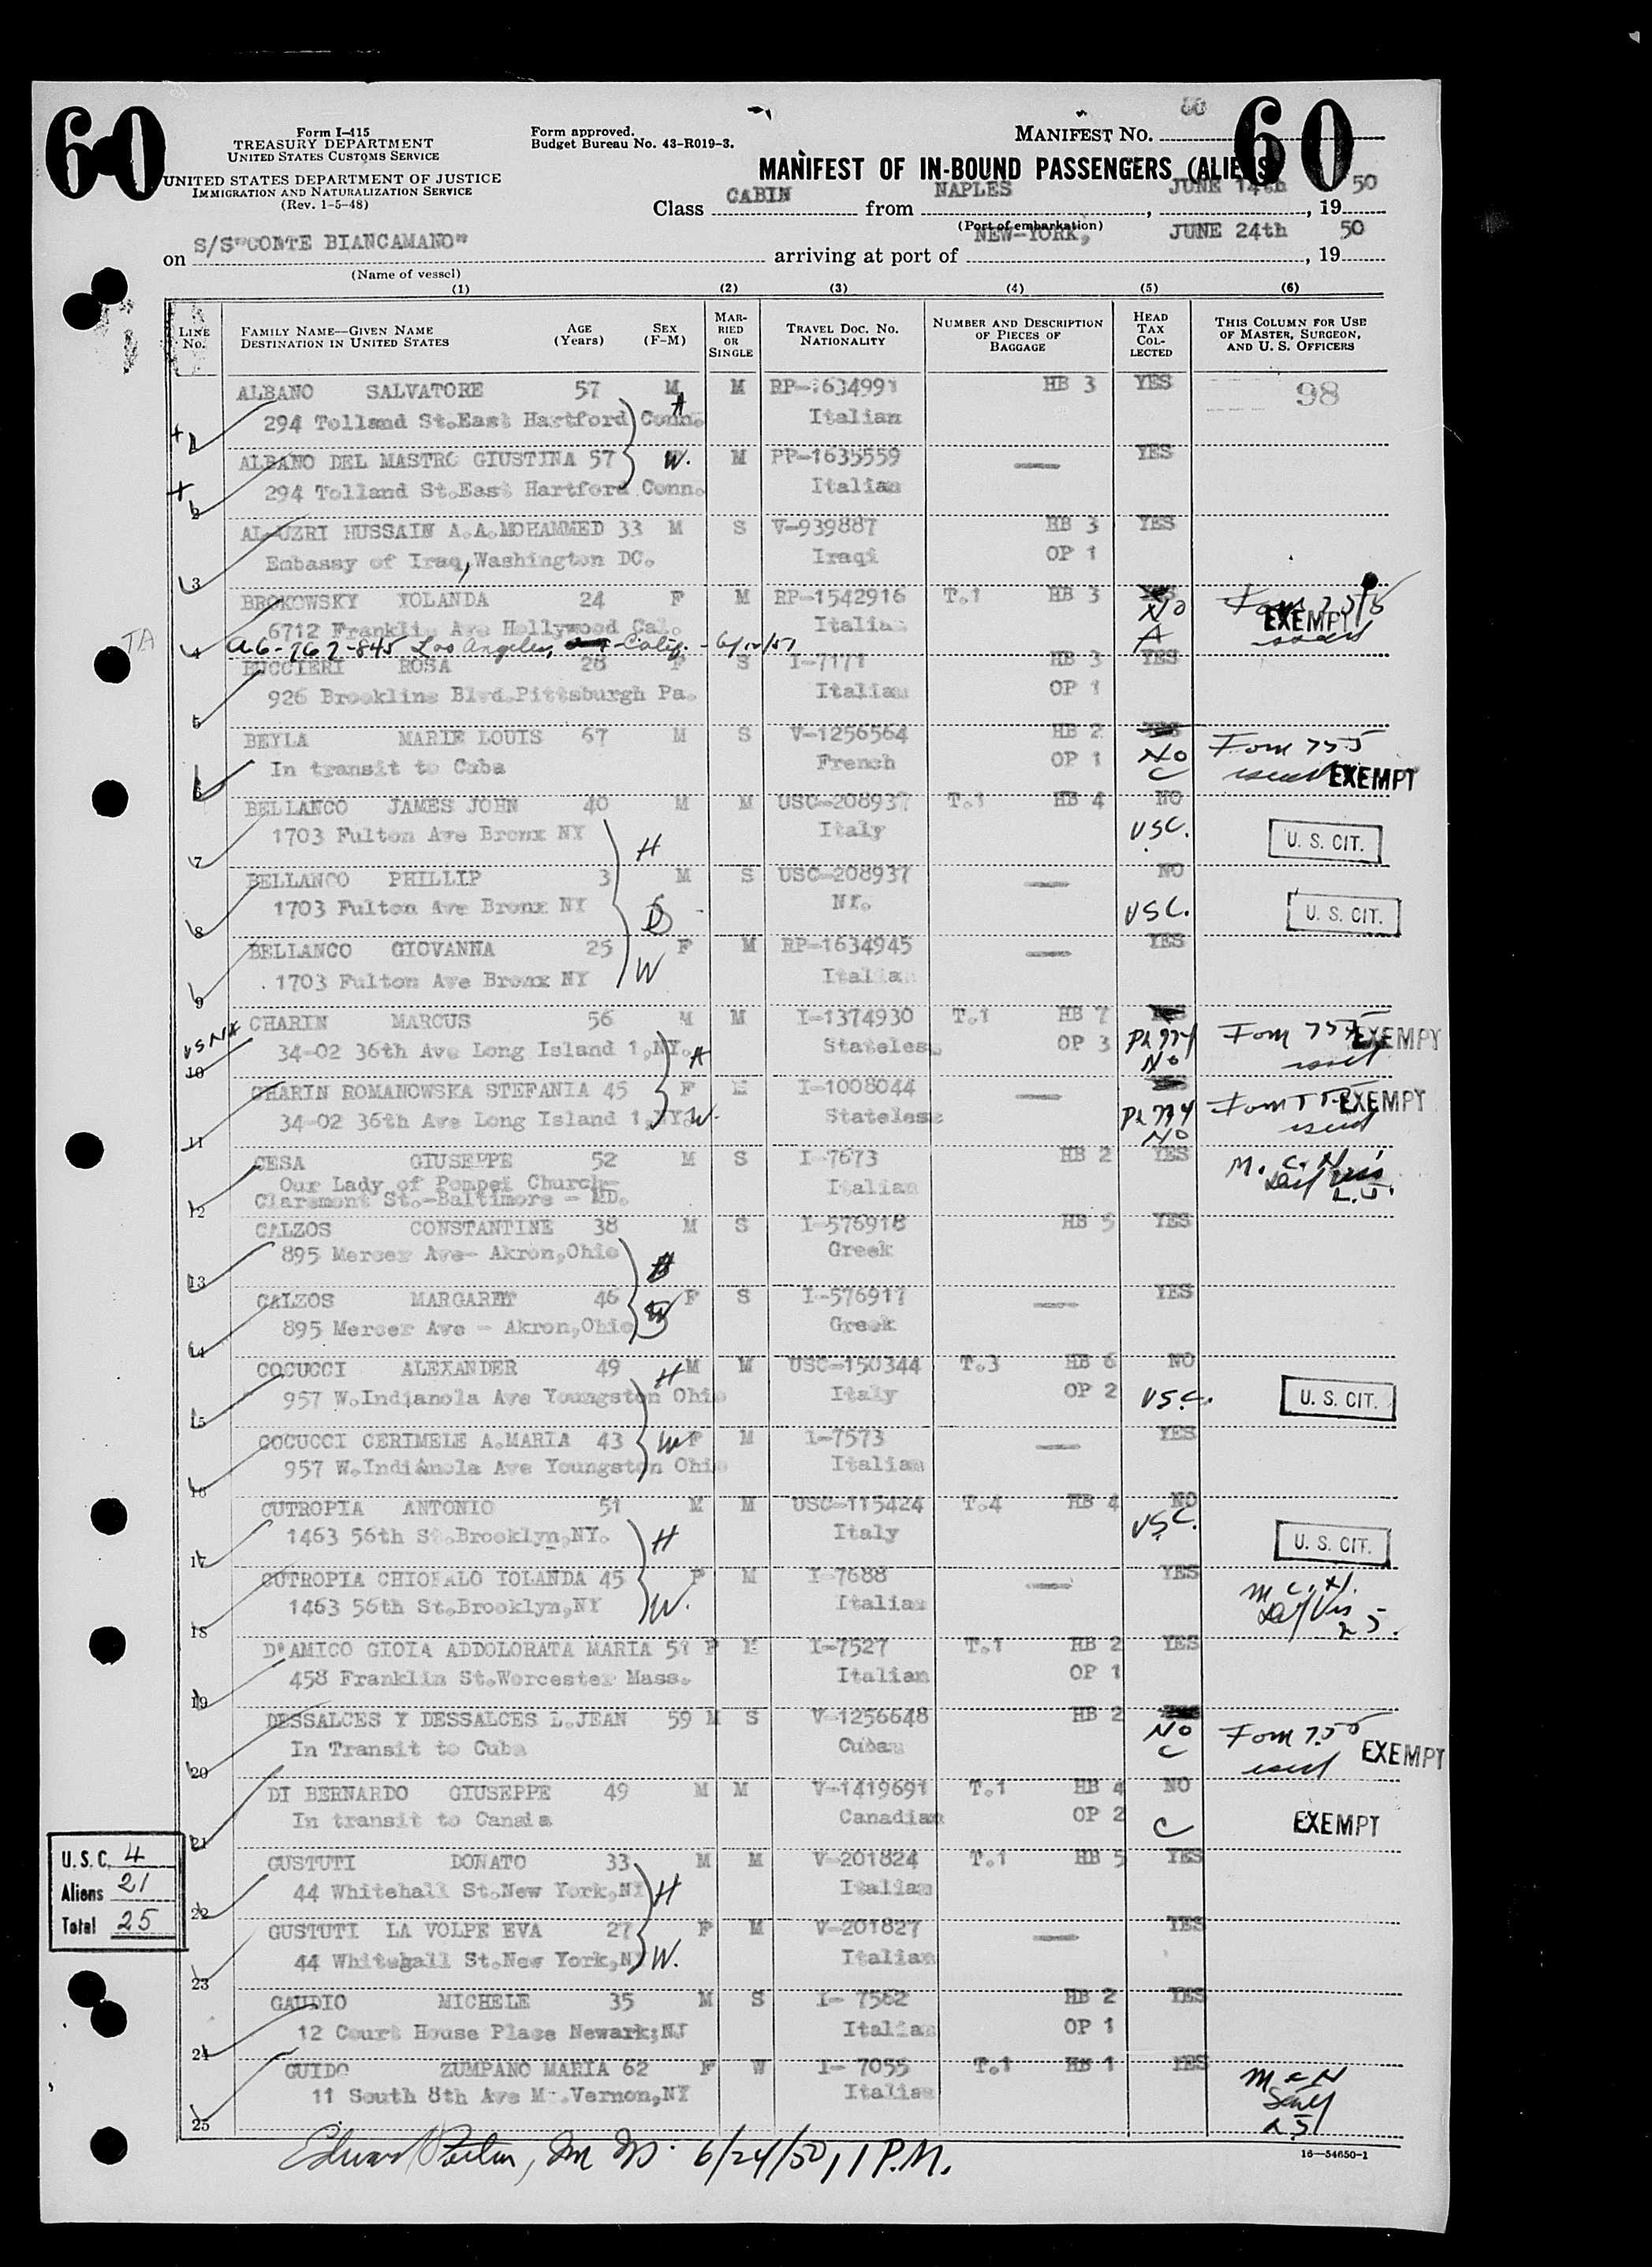 60
60
60
Form I-415
TREASURY DEPARTMENT
UNITED STATES CUSTOMS SERVICE
UNITED STATES DEPARTMENT OF JUSTICE
IMMIGRATION AND NATURALIZATION SERVICE
(Rev. 1-5-48)
Form approved.
Budget Bureau No. 43-R019-3.
MANIFEST NO.
MANIFEST OF IN-BOUND PASSENGERS (ALIENS)
Class CABIN from NAPLES, JUNE 14th, 1950
(Port of embarkation)
on S/S"CONTE BIANCAMANO" arriving at port of NEW-YORK, JUNE 24th, 1950
(Name of vessel)
(1) (2) (3) (4) (5) (6)
LINE No. FAMILY NAME—GIVEN NAME DESTINATION IN UNITED STATES AGE (Years) SEX (F-M) MARRIED OR SINGLE TRAVEL DOC. NO. NATIONALITY NUMBER AND DESCRIPTION OF PIECES OF BAGGAGE HEAD TAX COLLECTED THIS COLUMN FOR USE OF MASTER, SURGEON, AND U. S. OFFICERS
ALBANO SALVATORE 57 M M RP-1634991 HB 3 YES 98
294 Tolland St.East Hartford Conn. H Italian
ALBANO DEL MASTRO GIUSTINA 57 W. M PP-1635559 — YES
2 294 Tolland St.East Hartford Conn. Italian
AL-UZRI HUSSAIN A.A.MOHAMMED 33 M S V-939887 HB 3 YES
3 Embassy of Iraq,Washington DC. Iraqi OP 1
BROKOWSKY YOLANDA 24 F M RP-1542916 T.1 HB 3 NO
4 6712 Franklin Ave Hollywood Cal. Italian A EXEMPT
A6-767-845 Los Angeles, Calif. - 6/12/51
BUCCIERI ROSA 28 F S I-7171 HB 3 YES
5 926 Brookline Blvd.Pittsburgh Pa. Italian OP 1
BEYLA MARIE LOUIS 67 M S V-1256564 HB 2 NO Form 755
6 In transit to Cuba French OP 1 C issued EXEMPT
BELLANCO JAMES JOHN 40 M M USC-208937 T.1 HB 4 NO
7 1703 Fulton Ave Bronx NY H Italy USC. U. S. CIT.
BELLANCO PHILLIP 3 M S USC-208937 — NO
8 1703 Fulton Ave Bronx NY NY. USC. U. S. CIT.
BELLANCO GIOVANNA 25 F M RP-1634945 — YES
9 1703 Fulton Ave Bronx NY W Italian
CHARIN MARCUS 56 M M I-1374930 T.1 HB 7 Form 755 EXEMPT
10 34-02 36th Ave Long Island 1,NY. H Stateless OP 3 NO issued
CHARIN ROMANOWSKA STEFANIA 45 F M I-1008044 — EXEMPT
11 34-02 36th Ave Long Island 1,NY. W. Stateless NO issued
CESA GIUSEPPE 52 M S I-7673 HB 2 YES
Our Lady of Pompei Church- Italian
12 Claremont St.-Baltimore - MD.
CALZOS CONSTANTINE 38 M S I-576918 HB 5 YES
13 895 Mercer Ave- Akron,Ohio Greek
CALZOS MARGARET 46 F S I-576917 — YES
14 895 Mercer Ave - Akron,Ohio Greek
COCUCCI ALEXANDER 49 H M M USC-150344 T.3 HB 6 NO
15 957 W.Indianola Ave Youngston Ohio Italy OP 2 USC. U. S. CIT.
COCUCCI CERIMELE A.MARIA 43 W F M I-7573 — YES
16 957 W.Indianola Ave Youngston Ohio Italian
CUTROPIA ANTONIO 51 M M USC-115424 T.4 HB 4 NO
17 1463 56th St.Brooklyn,NY. H Italy USC. U. S. CIT.
CUTROPIA CHIOFALO IOLANDA 45 F M I-7688 — YES
18 1463 56th St.Brooklyn,NY W. Italian
D'AMICO GIOIA ADDOLORATA MARIA 51 F M I-7527 T.1 HB 2 YES
19 458 Franklin St.Worcester Mass. Italian OP 1
DESSALCES Y DESSALCES L.JEAN 59 M S V-1256648 HB 2 NO Form 755
20 In Transit to Cuba Cuban C issued EXEMPT
DI BERNARDO GIUSEPPE 49 M M V-1419691 T.1 HB 4 NO
21 In transit to Canada Canadian OP 2 C EXEMPT
GUSTUTI DONATO 33 M M V-201824 T.1 HB 5 YES
22 44 Whitehall St.New York,NY H Italian
GUSTUTI LA VOLPE EVA 27 F M V-201827 — YES
23 44 Whitehall St.New York,NY W. Italian
GAUDIO MICHELE 35 M S I- 7562 HB 2 YES
24 12 Court House Place Newark;NJ Italian OP 1
GUIDO ZUMPANO MARIA 62 F W I- 7055 T.1 HB 1 YES
25 11 South 8th Ave Mt.Vernon,NY Italian
U.S.C. 4
Aliens 21
Total 25
6/24/50, 1 P.M.
16—54650-1